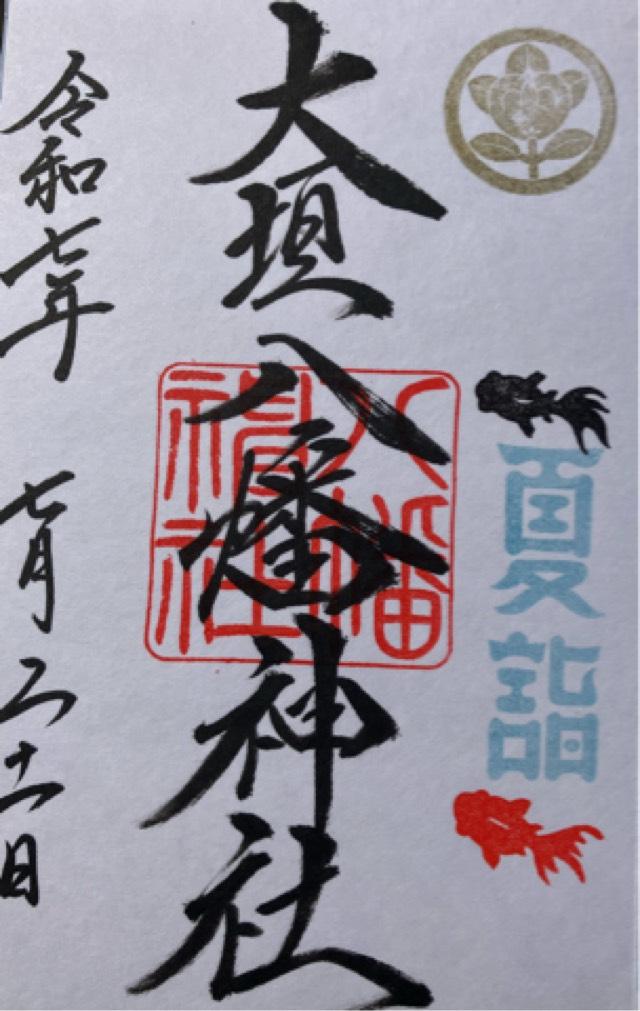 夏詣
大垣八幡神社
八幡神社
令和七年 七月二十一日